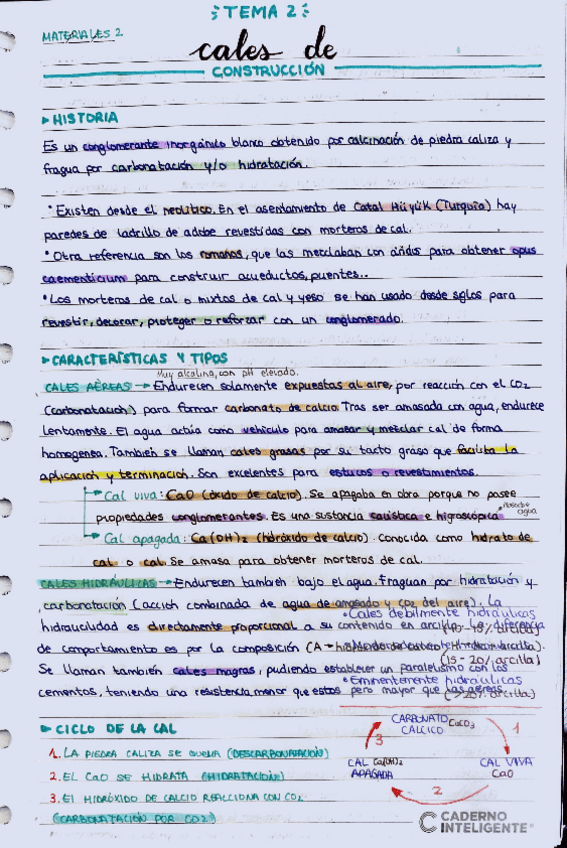 TEMA 2:
MATERIALES 2
cales de
CONSTRUCCIÓN
▶ HISTORIA
Es un conglomerante inorgánico blanco obtenido por calcinación de piedra caliza y
fragua por carbonatación y/o hidratación.
• Existen desde el neolítico. En el asentamiento de Catal Hüyük (Turquía) hay
paredes de ladrillo de adobe revestidas con morteros de cal.
• Otra referencia son los romanos, que las mezclaban con áridos para obtener opus
caementicium para construir acueductos, puentes..
• Los morteros de cal o mixtos de cal y yeso se han usado desde siglos para
revestir, decorar, proteger o reforzar con un conglomerado.
▶ CARACTERÍSTICAS Y TIPOS
Muy alcalina, con pH elevado.
CALES AÉREAS → Endurecen solamente expuestas al aire, por reacción con el CO2
(carbonatación) para formar carbonato de calcio. Tras ser amasada con agua, endurece
lentamente. El agua actúa como vehículo para amasar y mezclar cal de forma
homogenea. También se llaman cales grasas por su tacto graso que facilita la
aplicación y terminación. Son excelentes para estucos o revestimientos.
→ Cal viva: CaO (óxido de calcio). Se apagaba en obra porque no posee
propiedades conglomerantes. Es una sustancia caústica e higroscópica
absorbe agua
→ Cal apagada: Ca(OH)2 (hidróxido de calcio). Conocida como hidrato de
cal o cal. Se amasa para obtener morteros de cal.
CALES HIDRÁULICAS → Endurecen también bajo el agua. Fraguan por hidratación y
carbonatación (acción combinada de agua de amasado y CO2 del aire). La
• Cales débilmente hidráulicas
hidraulicidad es directamente proporcional a su contenido en arcilla. La diferencia
(10-15% arcilla)
de comportamiento es por la composición (A →
(15-20% arcilla)
Se llaman también cales magras, pudiendo establecer un paralelismo con los
• Eminentemente hidráulicas
cementos, teniendo una resistencia menor que estos pero mayor que las aéreas.
(>20% arcilla)
▶ CICLO DE LA CAL
1. LA PIEDRA CALIZA SE QUEMA (DESCARBONATACIÓN)
2. EL CaO SE HIDRATA (HIDRATACIÓN)
3. El HIDRÓXIDO DE CALCIO REACCIONA CON CO2
(CARBONATACIÓN POR CO2)
CARBONATO CaCO3
CALCICO
1
3
CAL Ca(OH)2
APAGADA
CAL VIVA
CaO
2
CADERNO
INTELIGENTE®